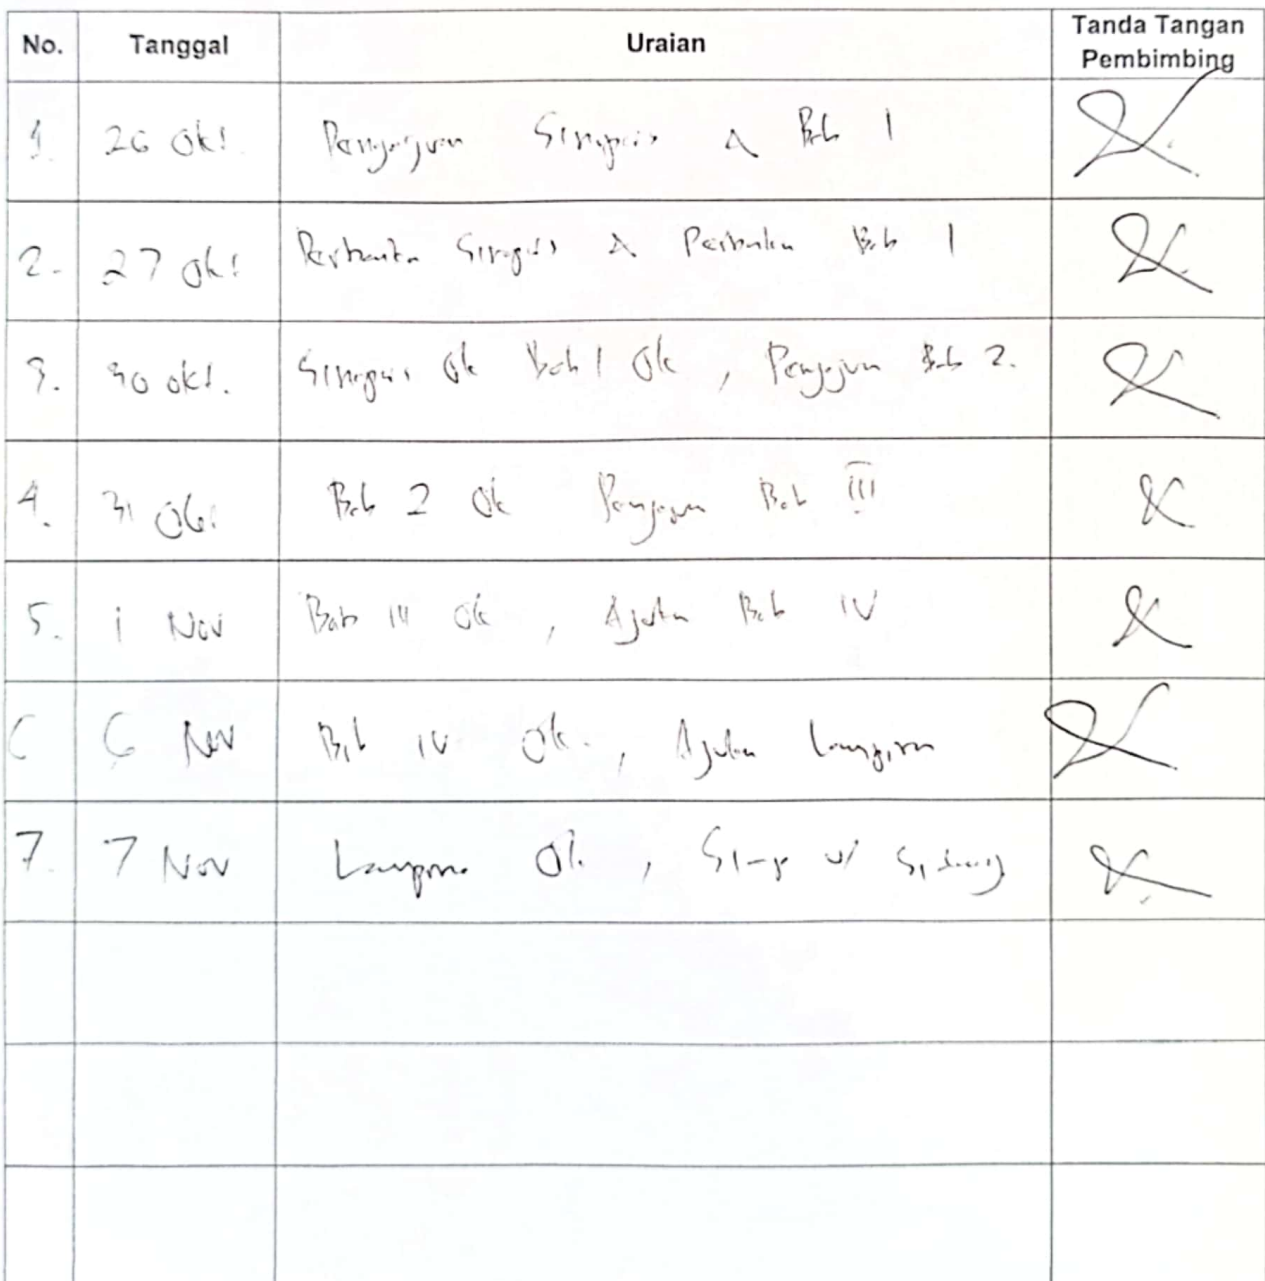 No. Tanggal Uraian Tanda Tangan
Pembimbing
1. 26 Okt. Pengajuan Sinopsis & Bab 1
2. 27 Okt Perbaiki Sinopsis & Perbaiki Bab 1
3. 30 Okt. Sinopsis Ok Bab 1 Ok, Pengajuan Bab 2.
4. 31 Okt Bab 2 Ok Pengajuan Bab III
5. 1 Nov Bab III Ok, Ajukan Bab IV
6 6 Nov Bab IV Ok, Ajukan Lampiran
7. 7 Nov Lampiran Ok, Siap u/ Sidang